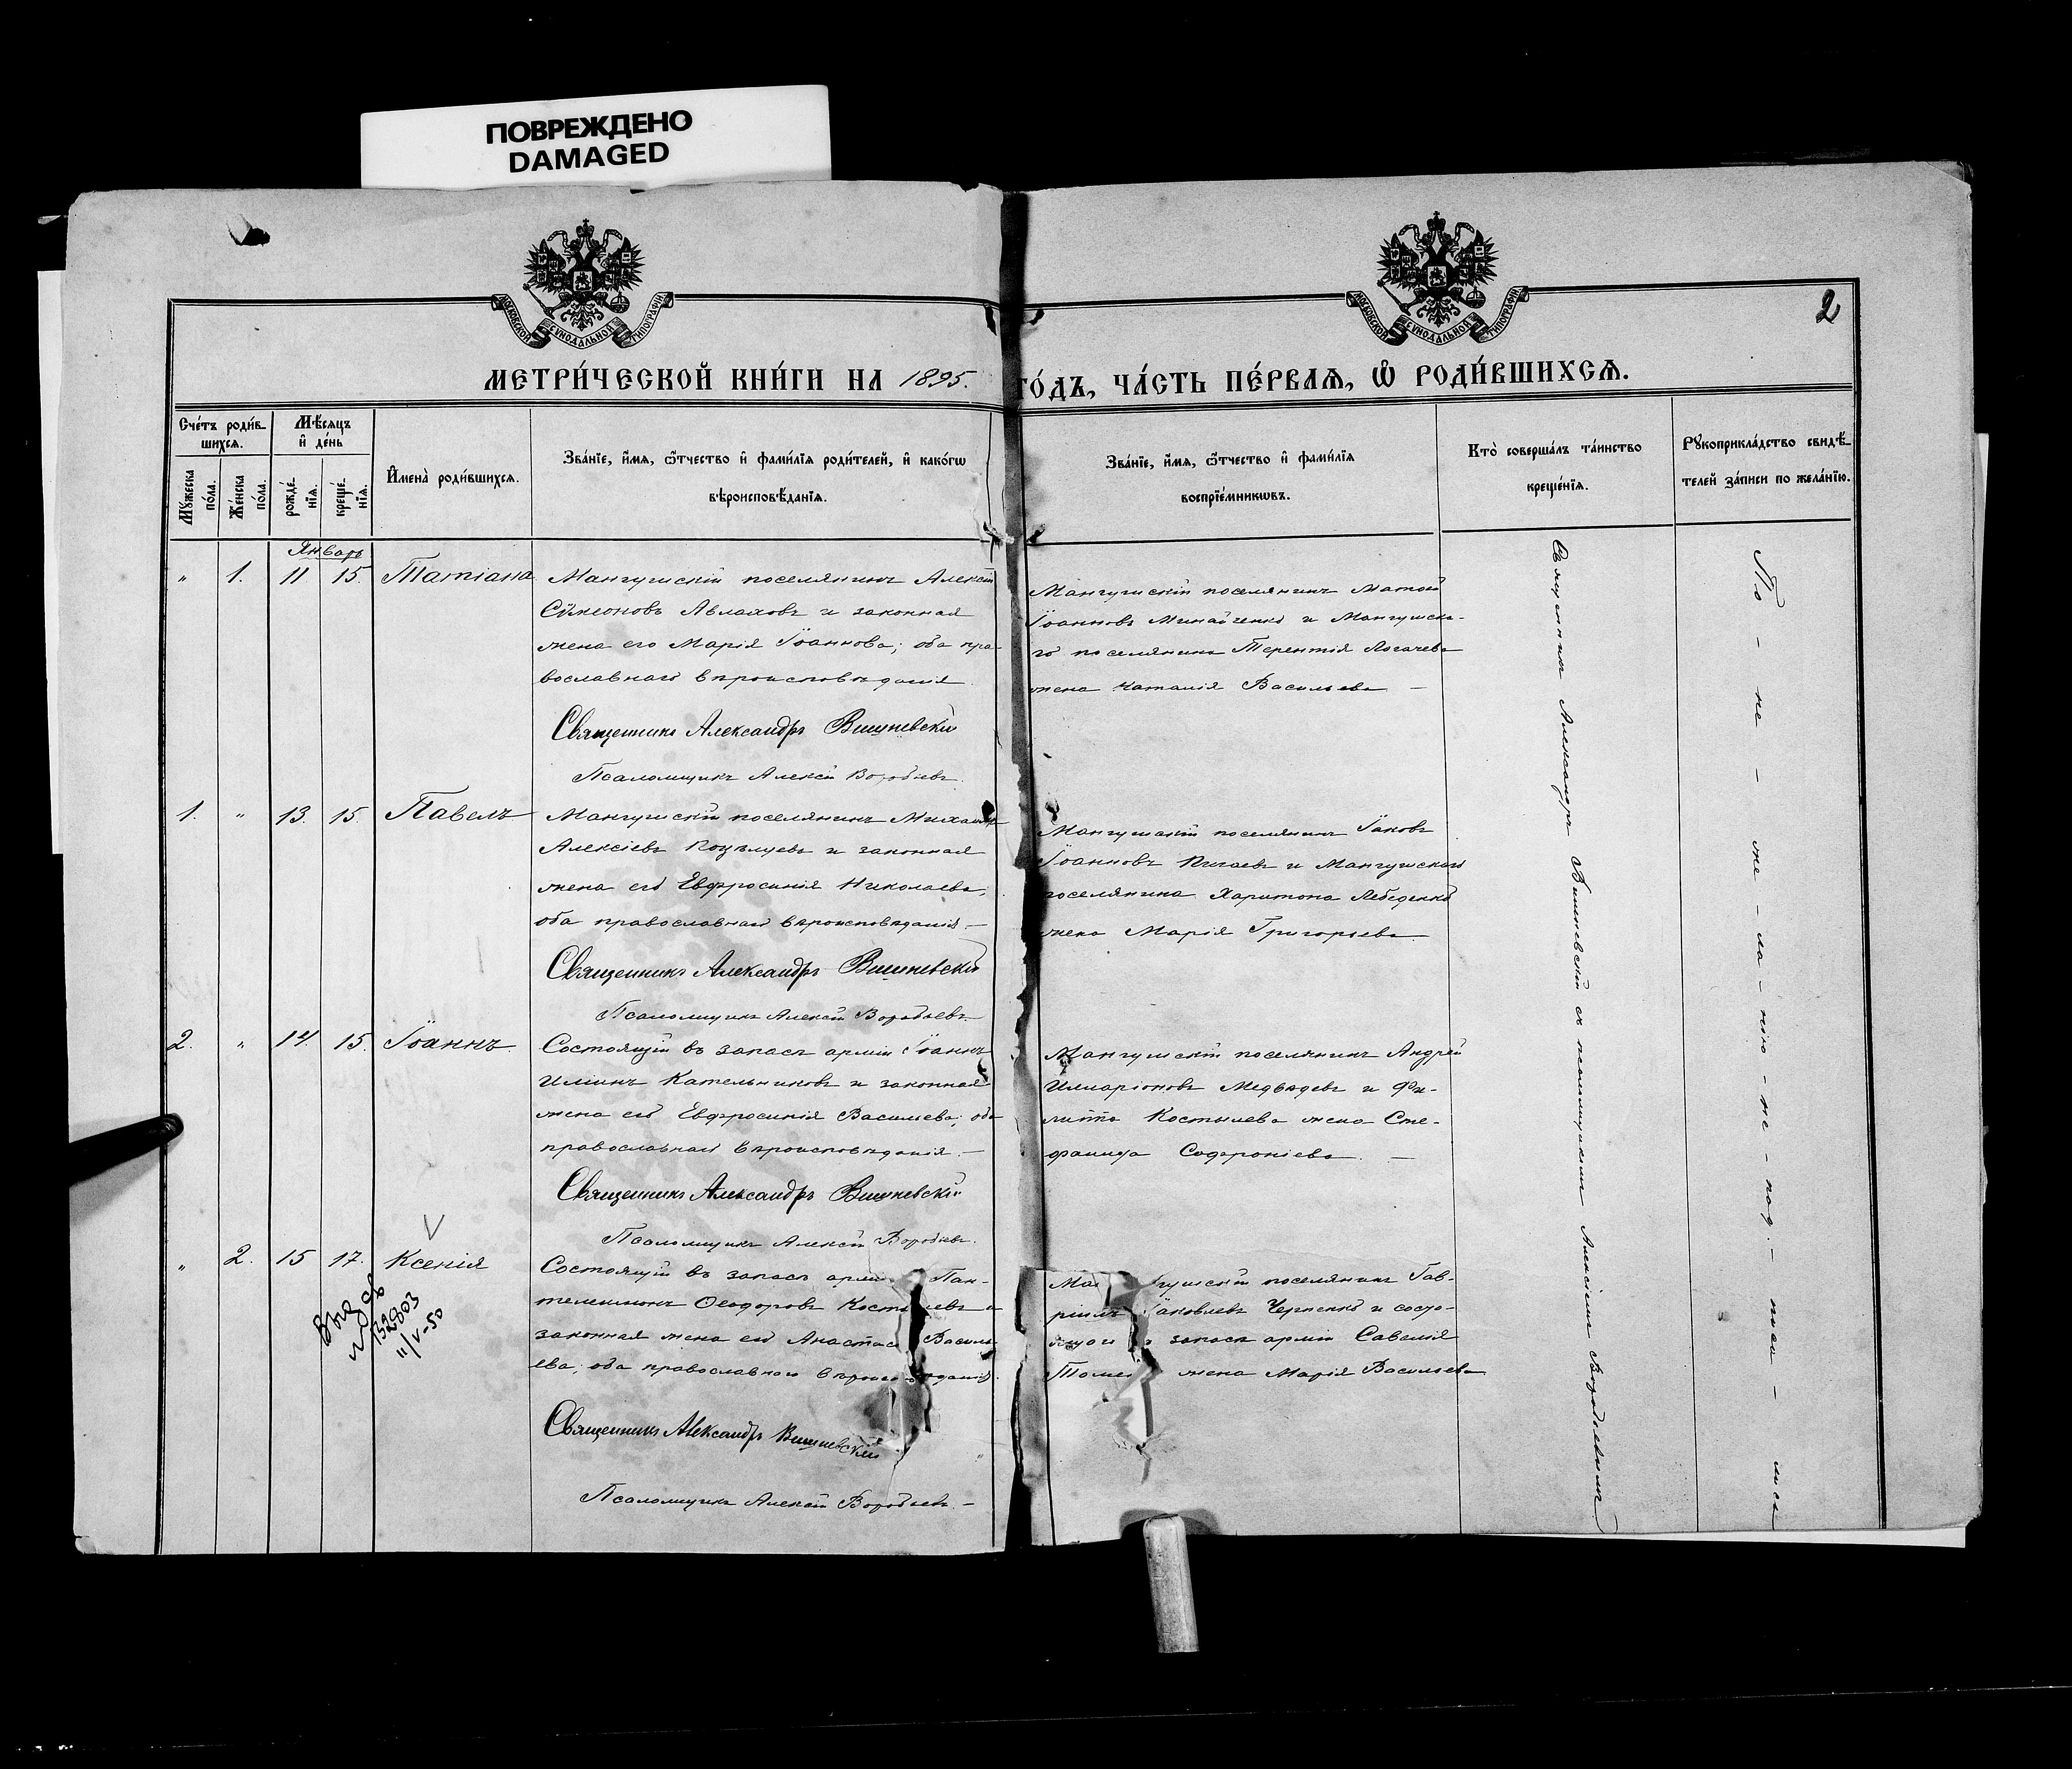 ПОВРЕЖДЕНО
DAMAGED
МОСКОВСКОЙ СѴНОДАЛЬНОЙ ТИПОГРАФІИ
МОСКОВСКОЙ СѴНОДАЛЬНОЙ ТИПОГРАФІИ
2
МЕТРИ́ЧЕСКОЙ КНИ́ГИ НА 1895. ГО́ДЪ, ЧА́СТЬ ПЕ́РВАѦ, Ѡ РОДИ́ВШИХСѦ.
Сче́тъ роди́в-
шихсѧ.
Мѣ́сѧцъ
и҆ де́нь
Мꙋ́жеска по́ла.
Же́нска по́ла.
рожде́-нїѧ.
креще́-нїѧ.
И҆мена̀ роди́вшихсѧ.
Зва́нїе, и҆́мѧ, ѻ҆́тчество и҆ фами́лїѧ роди́телей, и҆ како́гѡ
вѣроисповѣ́данїѧ.
Зва́нїе, и҆́мѧ, ѻ҆́тчество и҆ фами́лїѧ
воспрїе́мникѡвъ.
Кто̀ соверша́лъ та́инство
креще́нїѧ.
Рꙋкоприкла́дство свидѣ́-
телей за́писи по жела́нїю.
Январь
" 1. 11 15. Татіана
Мангушскій поселянинъ Алексій
Сѵмеоновъ Авлаховъ и законная
жена его Марія Іоаннова; оба пра-
вославнаго вѣроисповѣданія
Священникъ Александръ Вишневскій
Псаломщикъ Алексій Воробьевъ.
Мангушскій поселянинъ
Іоанновъ Минайченко и Мангушска-
го поселянина Терентія Логачева
жена Наталія Васильева —
1. " 13. 15. Павелъ
Мангушскій поселянинъ Михаилъ
Алексіевъ и законная
жена его Евфросинія Николаева,
оба православнаго вѣроисповѣданія —
Священникъ Александръ Вишневскій
Псаломщикъ Алексій Воробьевъ
Мангушскій поселянинъ Іаковъ
Іоанновъ и Мангушскаго
поселянина Харитона Лебеденко
жена Марія Григорьева.
2. " 14. 15. Іоаннъ.
Состоящій въ запасѣ арміи Іоаннъ
Иліинъ Кательниковъ и законная
жена его Евфросинія Васильева; оба
православнаго вѣроисповѣданія. —
Священникъ Александръ Вишневскій
Псаломщикъ Алексій Воробьевъ.
Мангушскій поселянинъ Андрей
Илларіоновъ Медвѣдевъ и Фи-
липпа Костылева жена Сте-
фанида Софроніева. —
" 2. 15 17. Ксенія
132803
11/V-50
Состоящій въ запасѣ арміи Пан-
телеимонъ Ѳеодоровъ и
законная жена его Анастас Василь-
ева; оба православнаго вѣроисповѣданія.
Священникъ Александръ Вишневскій
Псаломщикъ Алексій Воробьевъ. —
поселянинъ Гав-
ріилъ Іаковлевъ Черненко и состо-
запасѣ арміи Савелія
жена Марія Васильева
Священникъ Александръ Вишневскій съ псаломщикомъ Алексіемъ Воробьевымъ.
По - не - же - ла - нію - не - под - писа - лись